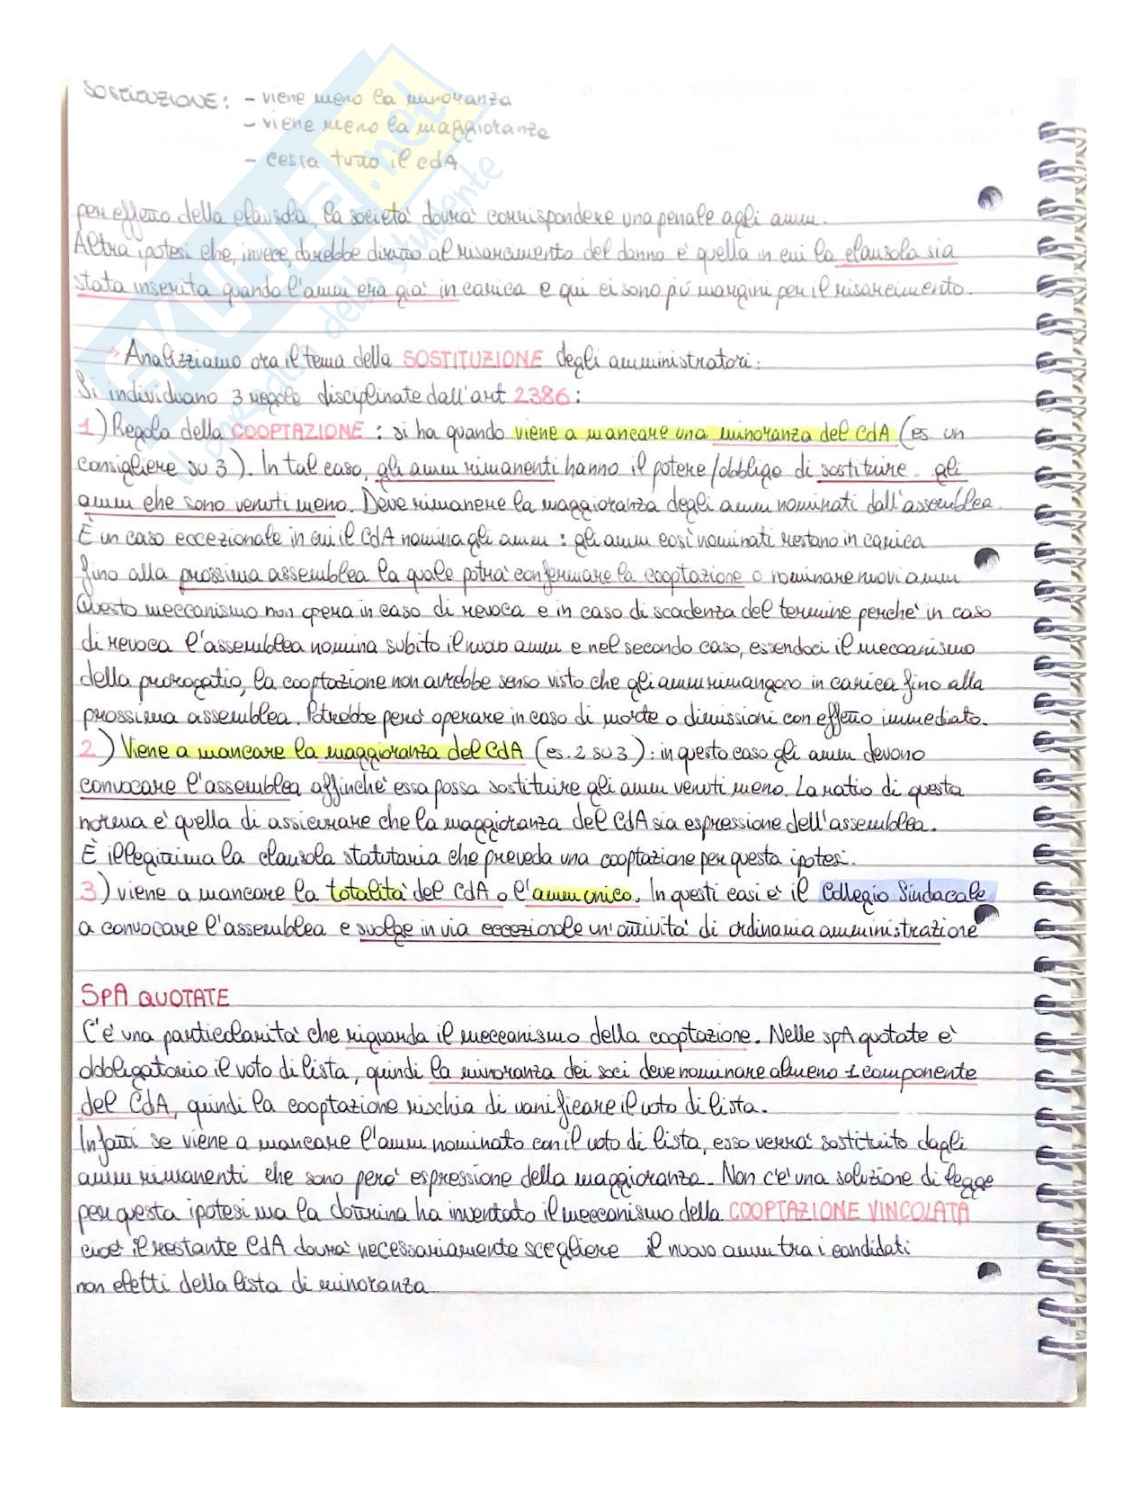 SOSTITUZIONE: - viene meno la minoranza
- viene meno la maggioranza
- cessa tutto il cdA
per effetto della clausola, la società dovrà corrispondere una penale agli amm.
Altra ipotesi che, invece, darebbe diritto al risarcimento del danno è quella in cui la clausola sia
stata inserita quando l'amm era già in carica e qui ci sono più margini per il risarcimento.
→ Analizziamo ora il tema della SOSTITUZIONE degli amministratori:
Si individuano 3 regole disciplinate dall'art 2386:
1) Regola della COOPTAZIONE: si ha quando viene a mancare una minoranza del CdA (es un
consigliere su 3). In tal caso, gli amm rimanenti hanno il potere/obbligo di sostituire gli
amm che sono venuti meno. Deve rimanere la maggioranza degli amm nominati dall'assemblea.
È un caso eccezionale in cui il CdA nomina gli amm: gli amm così nominati restano in carica
fino alla prossima assemblea la quale potrà confermare la cooptazione o nominare nuovi amm
Questo meccanismo non opera in caso di revoca e in caso di scadenza del termine perché in caso
di revoca l'assemblea nomina subito il nuovo amm e nel secondo caso, essendoci il meccanismo
della prorogatio, la cooptazione non avrebbe senso visto che gli amm rimangono in carica fino alla
prossima assemblea. Potrebbe però operare in caso di morte o dimissioni con effetto immediato.
2) Viene a mancare la maggioranza del CdA (es. 2 su 3): in questo caso gli amm devono
convocare l'assemblea affinché essa possa sostituire gli amm venuti meno. La ratio di questa
norma è quella di assicurare che la maggioranza del CdA sia espressione dell'assemblea.
È illegittima la clausola statutaria che preveda una cooptazione per questa ipotesi.
3) viene a mancare la totalità del CdA o l'amm unico. In questi casi è il Collegio Sindacale
a convocare l'assemblea e svolge in via eccezionale un'attività di ordinaria amministrazione
SPA QUOTATE
C'è una particolarità che riguarda il meccanismo della cooptazione. Nelle spA quotate è
obbligatorio il voto di lista, quindi la minoranza dei soci deve nominare almeno 1 componente
del CdA, quindi la cooptazione rischia di vanificare il voto di lista.
Infatti se viene a mancare l'amm nominato con il voto di lista, esso verrà sostituito dagli
amm rimanenti che sono però espressione della maggioranza. Non c'è una soluzione di legge
per questa ipotesi ma la dottrina ha inventato il meccanismo della COOPTAZIONE VINCOLATA
cioè il restante CdA dovrà necessariamente scegliere il nuovo amm tra i candidati
non eletti della lista di minoranza